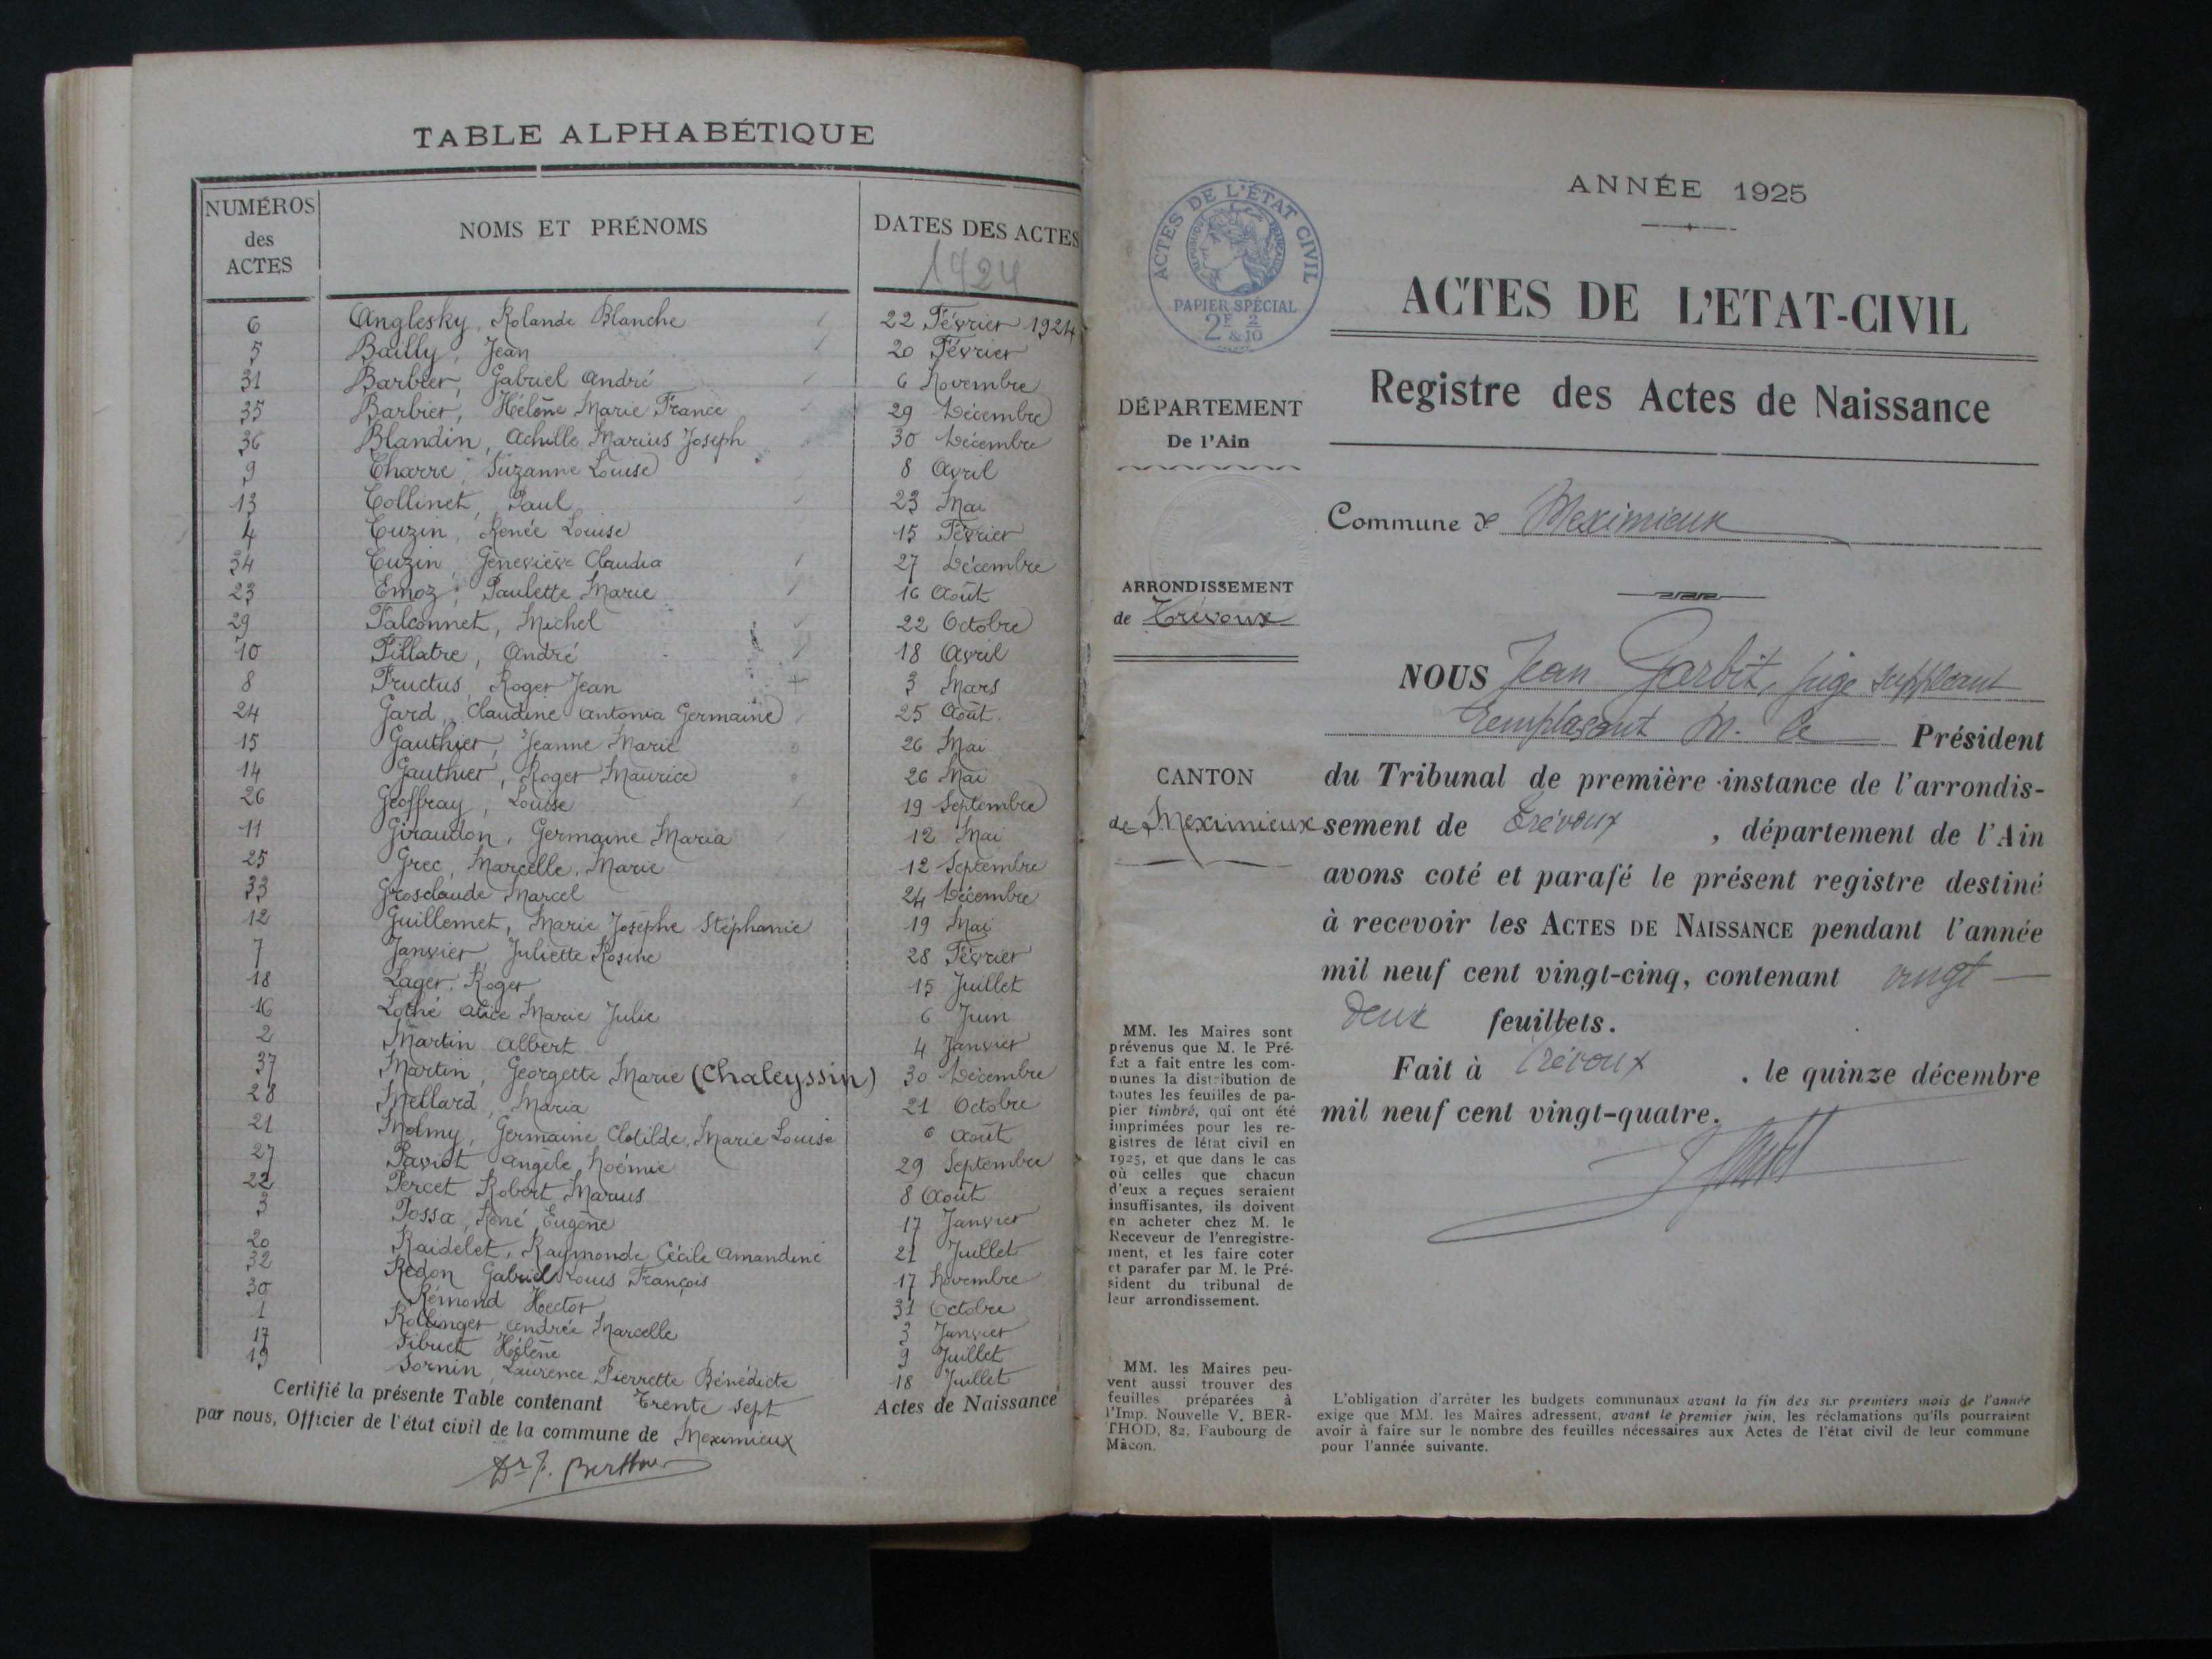 TABLE ALPHABÉTIQUE
NUMÉROS des ACTES
NOMS ET PRÉNOMS
DATES DES ACTES
1924
6 Anglesky, Rolande Blanche 22 Février 1924
5 Bailly, Jean 20 Février
31 Barbier, Gabriel André 6 Novembre
35 Barbier, Hélène Marie France 29 Décembre
36 Blandin, Achille Marius Joseph 30 Décembre
9 Charre, Suzanne Louise 8 Avril
13 Collinet, Paul 23 Mai
4 Cuzin, Renée Louise 15 Février
34 Cuzin, Geneviève Claudia 27 Décembre
23 Emoz, Paulette Marie 16 Août
29 Falconnet, Michel 22 Octobre
10 Fillatre, André 18 Avril
8 Fructus, Roger Jean 3 Mars
24 Gard, Claudine Antonia Germaine 25 Août
15 Gauthier, Jeanne Marie 26 Mai
14 Gauthier, Roger Maurice 26 Mai
26 Geoffray, Louise 19 Septembre
11 Giraudon, Germaine Maria 12 Mai
25 Grec, Marcelle, Marie 12 Septembre
33 Grosclaude Marcel 24 Décembre
12 Guillemet, Marie Josephe Stéphanie 19 Mai
7 Janvier Juliette Rosine 28 Février
18 Lager, Roger 15 Juillet
16 Lothé Alice Marie Julie 6 Juin
2 Martin Albert 4 Janvier
37 Martin, Georgette Marie (Chaleyssin) 30 Décembre
28 Mellard, Maria 21 Octobre
21 Molmy, Germaine Clotilde, Marie Louise 6 Août
27 Paviot Angèle Noémie 29 Septembre
22 Percet Robert Marius 8 Août
3 Possa, René, Eugène 17 Janvier
20 Raidelet, Raymonde Cécile Amandine 21 Juillet
32 Redon Gabriel Louis François 17 Novembre
30 Rémond Hector 31 Octobre
1 Andrée Marcelle 3 Janvier
17 Sibuet Hélène 9 Juillet
19 Sornin, Laurence Pierrette Bénédicte 18 Juillet
Certifié la présente Table contenant Trente sept Actes de Naissance
par nous, Officier de l'état civil de la commune de Meximieux
Dr J. Berthou
ANNÉE 1925
ACTES DE L'ÉTAT CIVIL
RÉPUBLIQUE FRANÇAISE
PAPIER SPÉCIAL
2F 2 & 10
ACTES DE L'ETAT-CIVIL
Registre des Actes de Naissance
DÉPARTEMENT
De l'Ain
Commune de Meximieux
ARRONDISSEMENT
de Trévoux
CANTON
de Meximieux
NOUS Jean Garbit, juge suppléant
remplaçant M. le Président
du Tribunal de première instance de l'arrondis-
sement de Trévoux, département de l'Ain
avons coté et parafé le présent registre destiné
à recevoir les ACTES DE NAISSANCE pendant l'année
mil neuf cent vingt-cinq, contenant vingt
deux feuillets.
Fait à Trévoux, le quinze décembre
mil neuf cent vingt-quatre.
MM. les Maires sont
prévenus que M. le Pré-
fet a fait entre les com-
munes la distribution de
toutes les feuilles de pa-
pier timbré, qui ont été
imprimées pour les re-
gistres de létat civil en
1925, et que dans le cas
où celles que chacun
d'eux a reçues seraient
insuffisantes, ils doivent
en acheter chez M. le
Receveur de l'enregistre-
ment, et les faire coter
et parafer par M. le Pré-
sident du tribunal de
leur arrondissement.
MM. les Maires peu-
vent aussi trouver des
feuilles préparées à
l'Imp. Nouvelle V. BER-
THOD, 82, Faubourg de
Mâcon.
L'obligation d'arrêter les budgets communaux avant la fin des six premiers mois de l'année
exige que MM. les Maires adressent, avant le premier juin, les réclamations qu'ils pourraient
avoir à faire sur le nombre des feuilles nécessaires aux Actes de l'état civil de leur commune
pour l'année suivante.